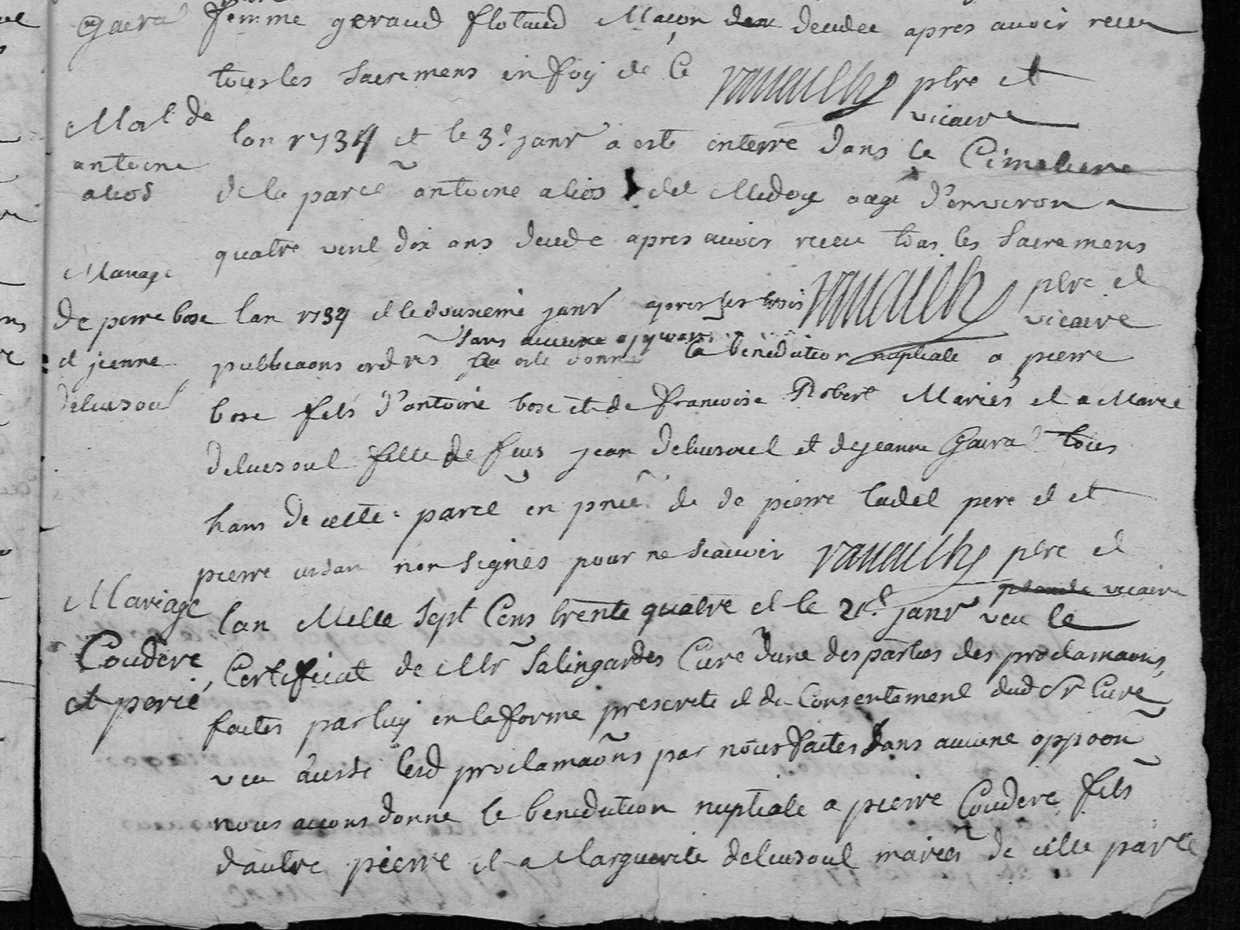 gaira femme geraud flotaud Maçon decedee apres avoir receu
tous les Sacremens en foy de Ce vanauld pbre et
vicaire
Mort de
antoine
alios
lan 1734 et le 3e janr a este enterré dans le Cimetiere
de la parce antoine alios del Medou aagé d'environ
quatre vint dix ans decede apres avoir receu tous les Sacremens
pbre et
vicaire
Mariage
de pierre bose
et jeanne
delursoul
lan 1734 et le douxieme janr apres les trois
sans aucune
publicaons ordres a este donné la benediction nuptiale a pierre
bose fils d'antoine bose et de francoise Robert Mariés et a Marie
delursoul fille de feus jean delursoul et de jeanne Gaira tous
hans de cette parce en pnce de de pierre ladel pere et et
pierre non signes pour ne scavoir pbre et
vicaire
Mariage
Couderc
et perie
lan Mille Sept Cens trente quatre et le 21e janr veu le
Certificat de Mr Salingardes Curé d'une des parties des proclamaons
faites par luy en la forme prescrite et du Consentement dud Sr Curé
veu aussi lesd proclamaons par nous faites sans aucune oppoon
nous avons donne le benediction nuptiale a pierre Couderc fils
d'autre pierre et a Marguerite delursoul mariés de cette parce